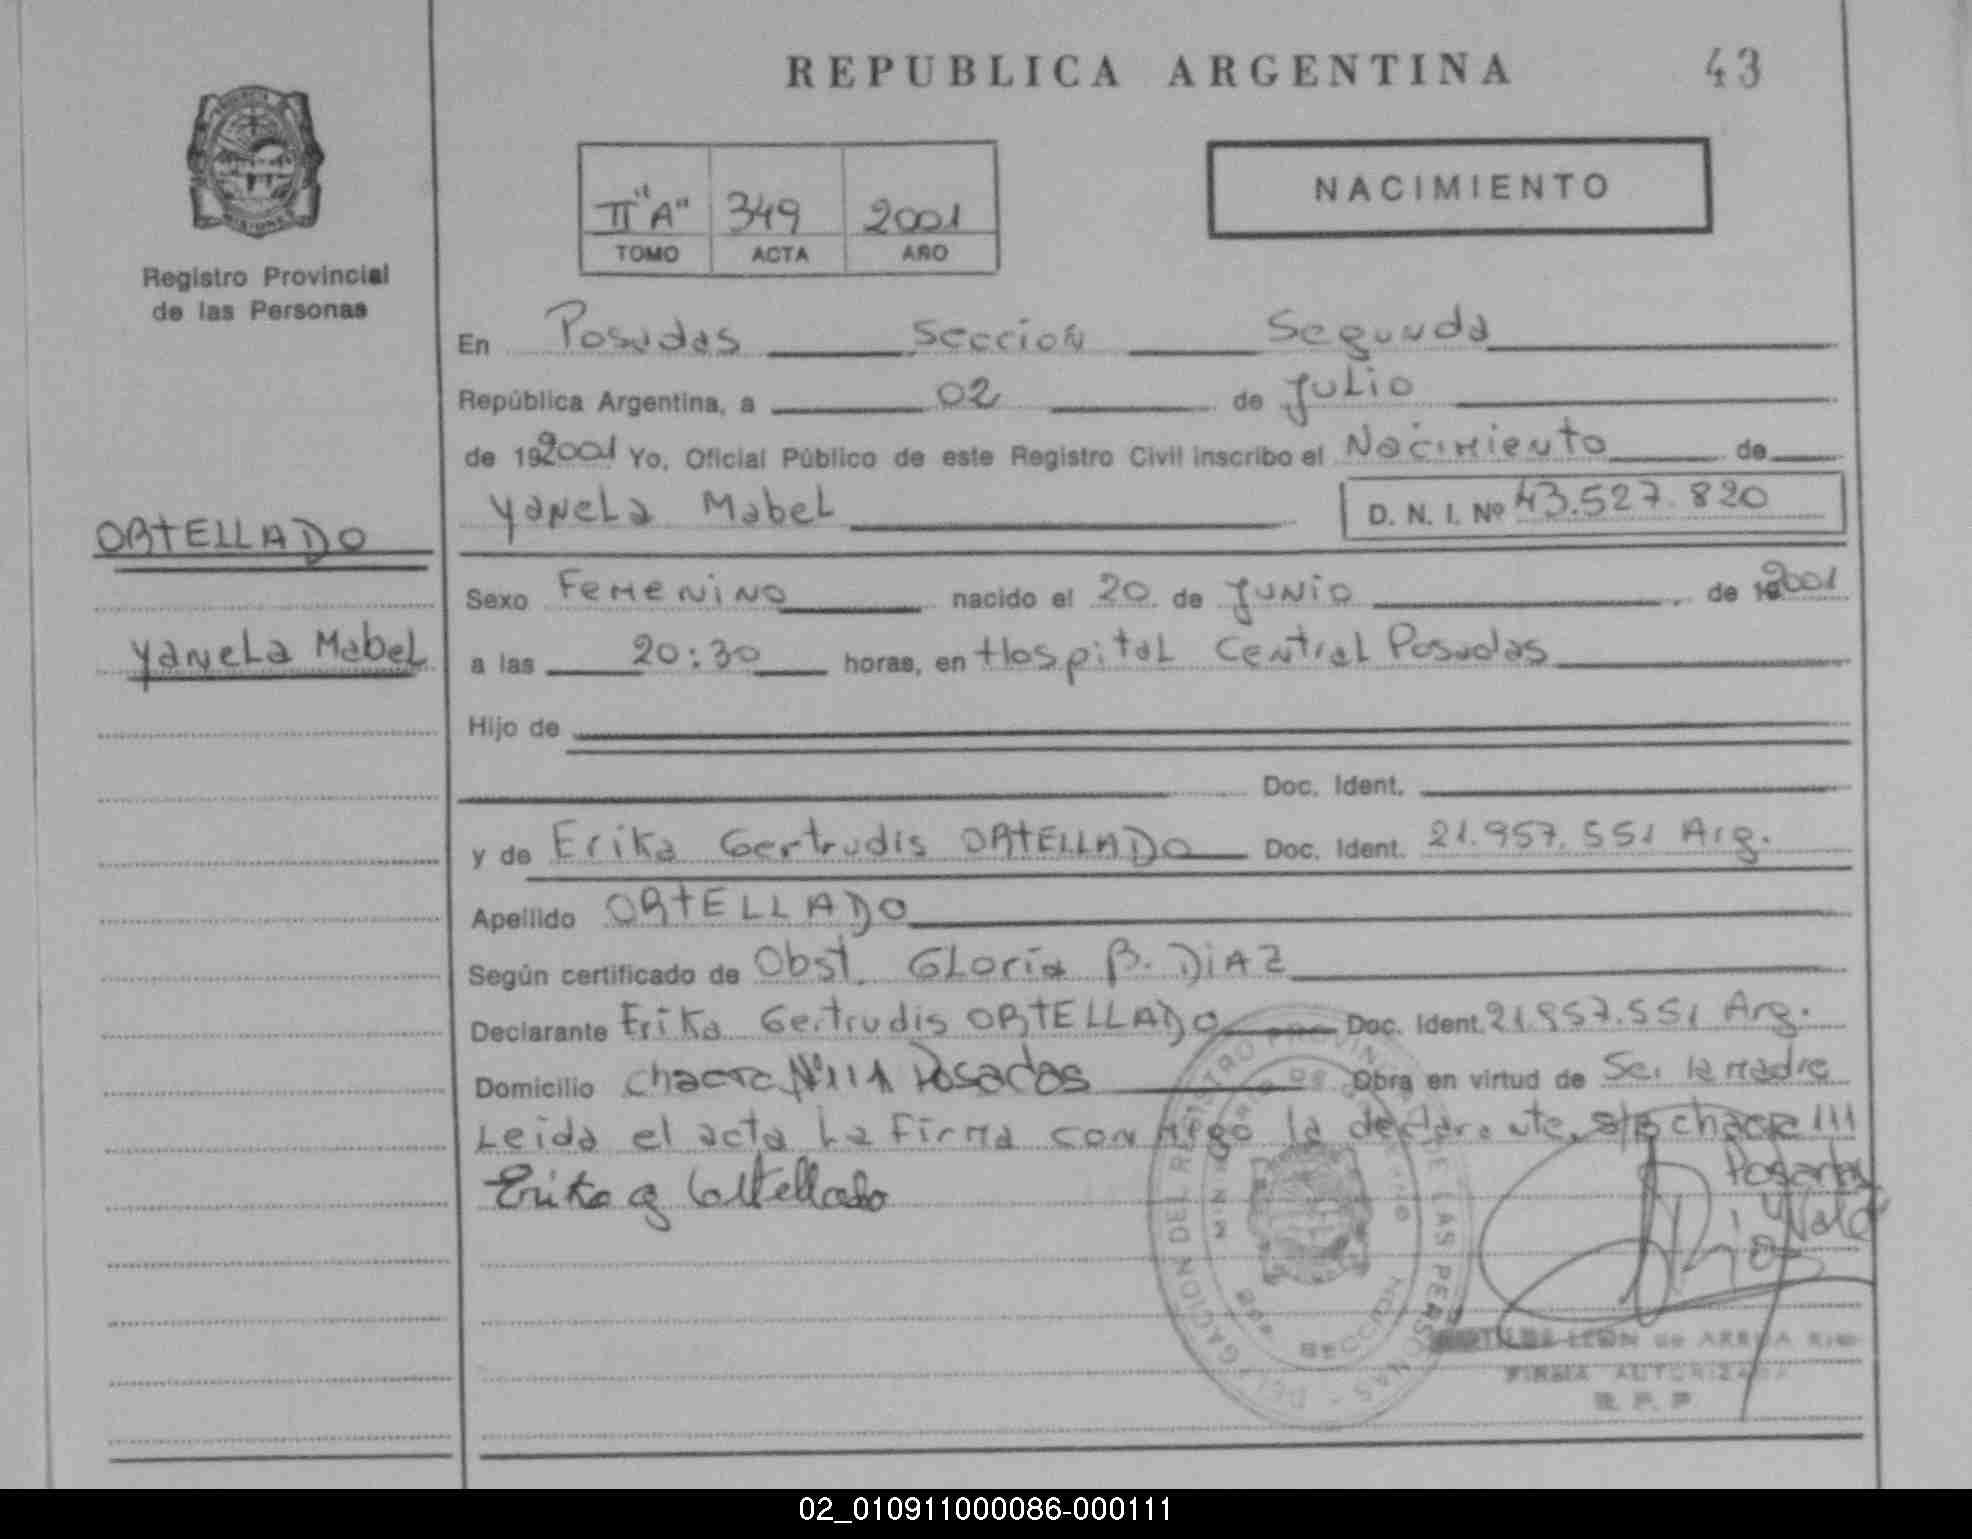 REPUBLICA ARGENTINA
43
II "A" 349 2001
TOMO ACTA AÑO
NACIMIENTO
Registro Provincial
de las Personas
En Posadas Sección Segunda
República Argentina, a 02 de Julio
de 192001 Yo, Oficial Público de este Registro Civil inscribo el Nacimiento de
Yanela Mabel D. N. I. Nº 43.527.820
ORTELLADO
Yanela Mabel
Sexo Femenino nacido el 20 de Junio de 192001
a las 20:30 horas, en Hospital Central Posadas
Hijo de
Doc. Ident.
y de Erika Gertrudis ORTELLADO Doc. Ident. 21.957.551 Arg.
Apellido ORTELLADO
Según certificado de Obst. Gloria B. DIAZ
Declarante Erika Gertrudis ORTELLADO Doc. Ident. 21.957.551 Arg.
Domicilio Chacra Nº 111 Posadas Obra en virtud de Ser la madre
Leida el acta la Firma conmigo la declarante, s/r chacra 111
Posadas
Vale
Erika G Ortellado
DELEGACION DEL REGISTRO PROVINCIAL DE LAS PERSONAS
SECCION
LEON de ARRUA
FIRMA AUTORIZADA
R. P. P
02_010911000086-000111